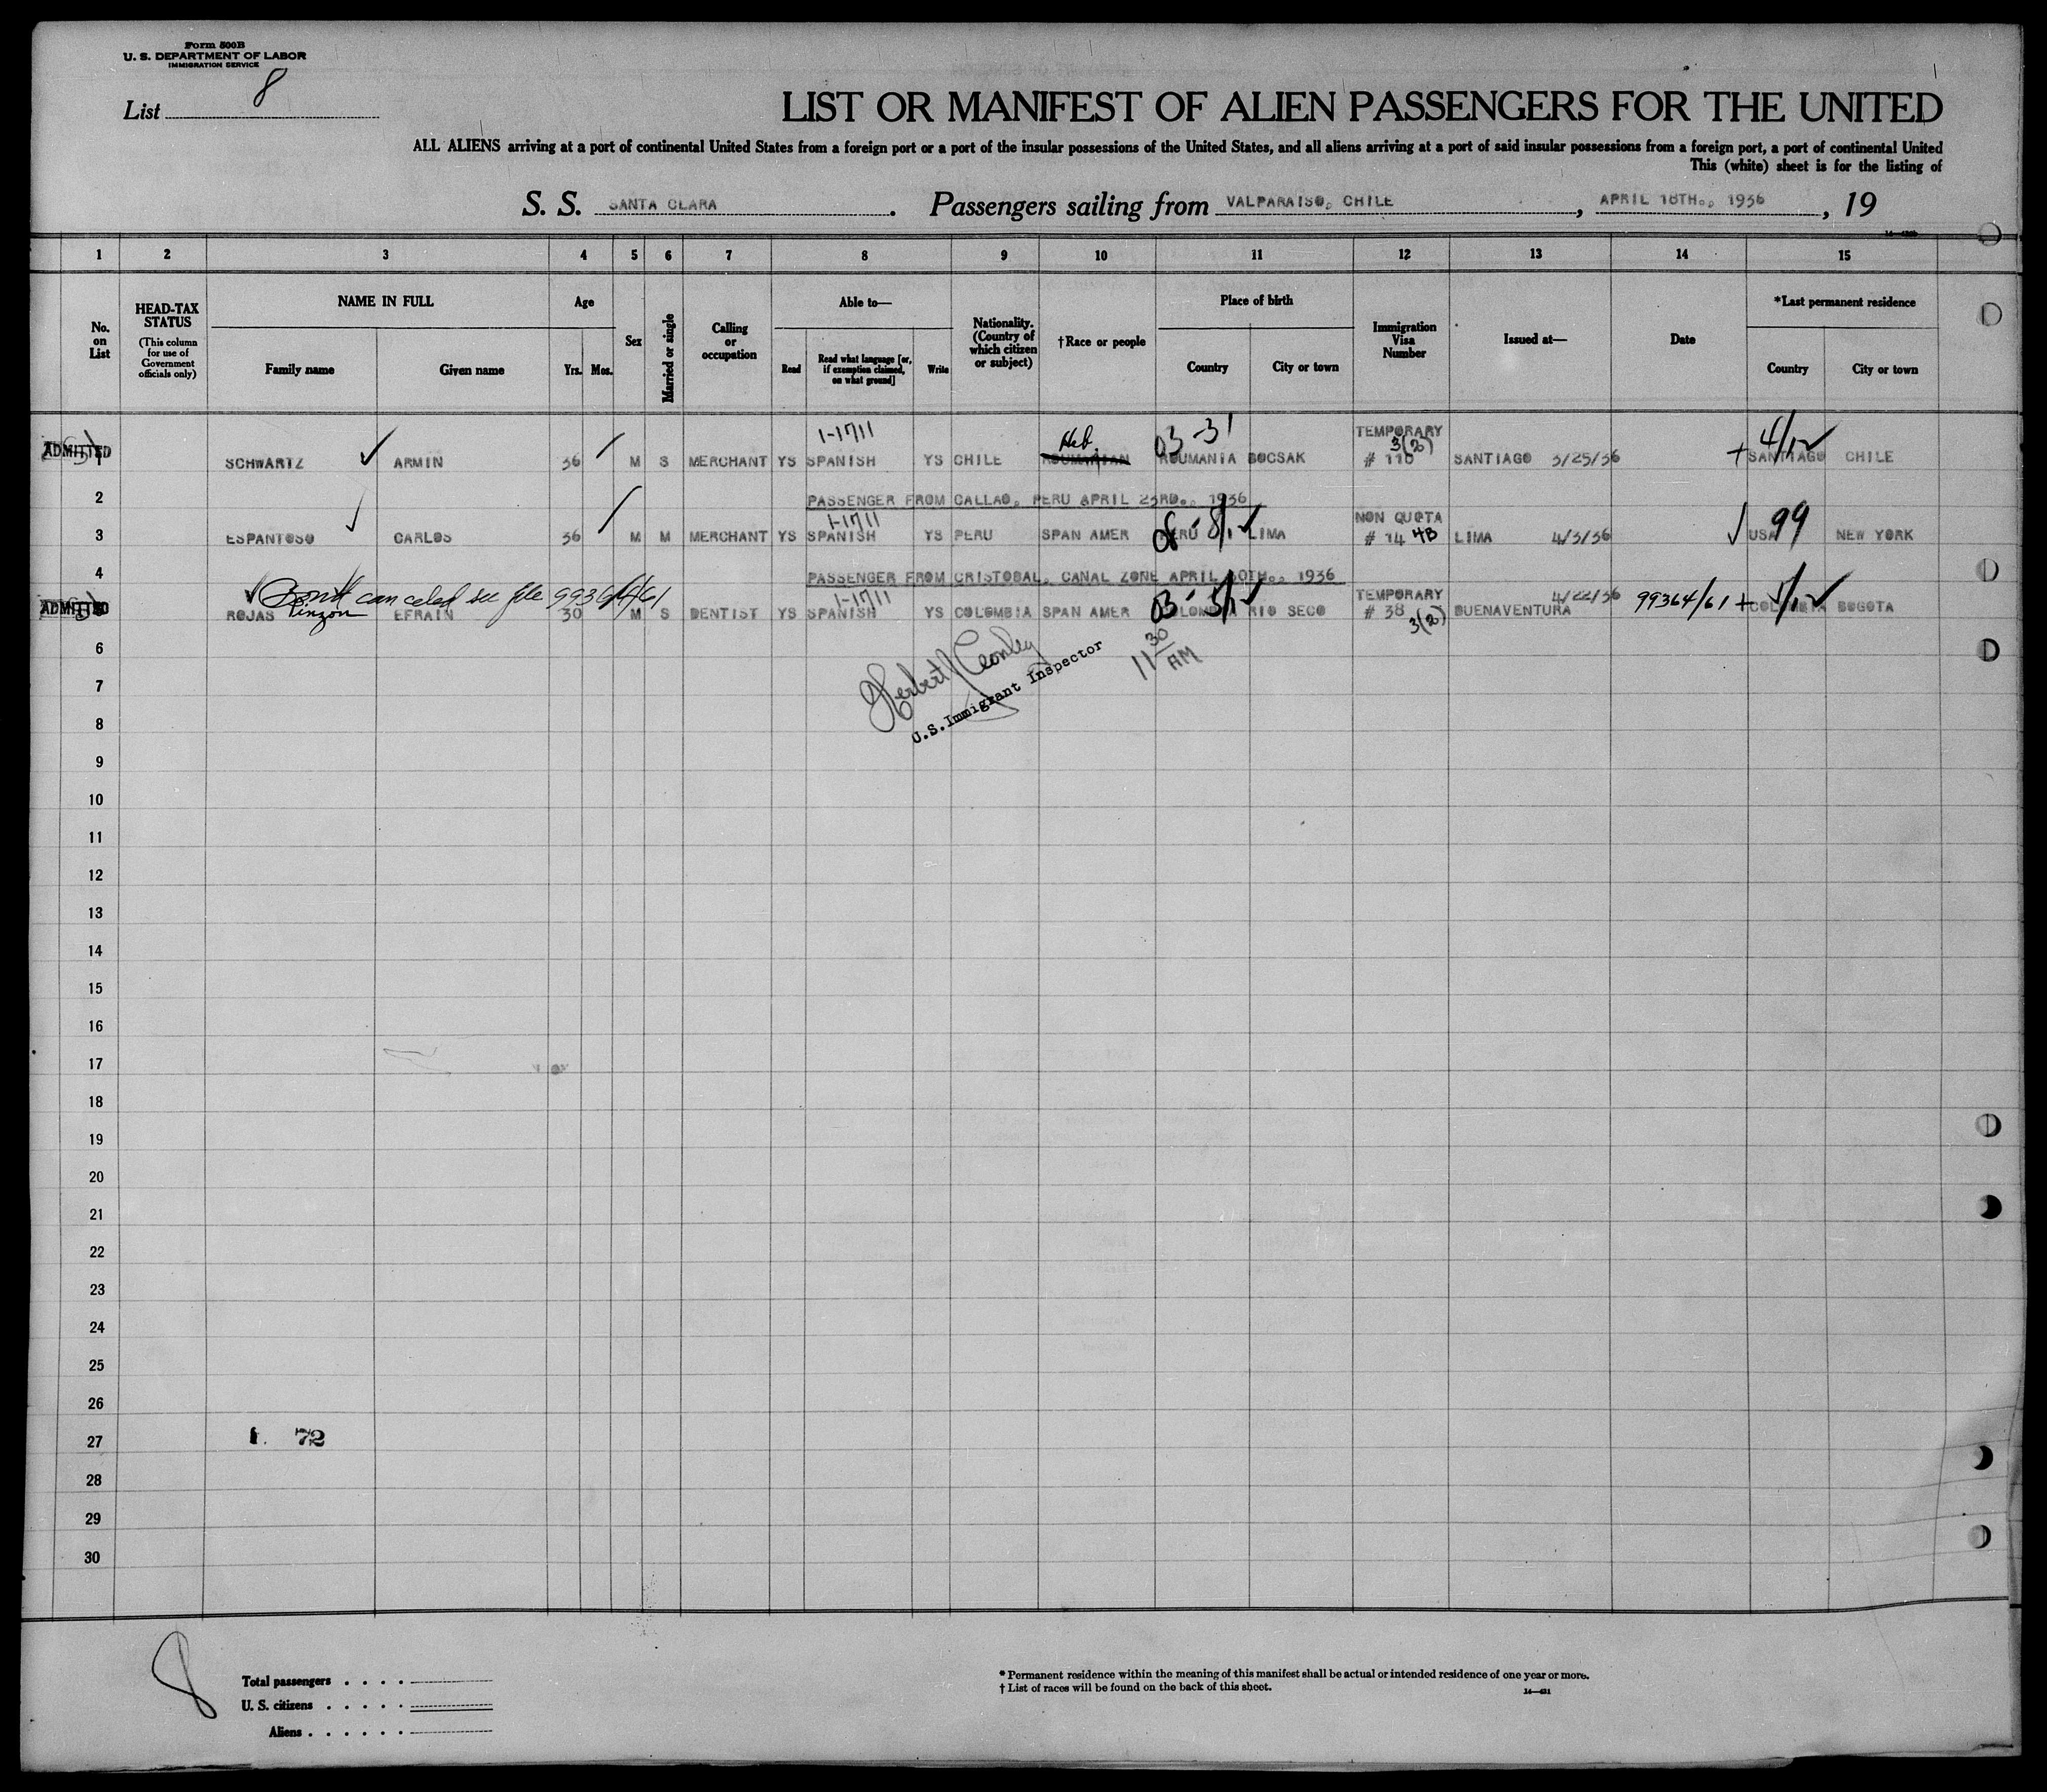 Form 500B
U. S. DEPARTMENT OF LABOR
IMMIGRATION SERVICE
List 8
LIST OR MANIFEST OF ALIEN PASSENGERS FOR THE UNITED
ALL ALIENS arriving at a port of continental United States from a foreign port or a port of the insular possessions of the United States, and all aliens arriving at a port of said insular possessions from a foreign port, a port of continental United
This (white) sheet is for the listing of
S. S. SANTA CLARA. Passengers sailing from VALPARAISO, CHILE, APRIL 18TH., 1936, 19
1 2 3 4 5 6 7 8 9 10 11 12 13 14 15
No. on List
HEAD-TAX STATUS (This column for use of Government officials only)
NAME IN FULL Family name Given name
Age Yrs. Mos.
Sex
Married or single
Calling or occupation
Able to— Read Read what language [or, if exemption claimed, on what ground] Write
Nationality. (Country of which citizen or subject)
†Race or people
Place of birth Country City or town
Immigration Visa Number
Issued at—
Date
*Last permanent residence Country City or town
1-1711 Heb. 03-31 TEMPORARY 3(2) 4/12
ADMITTED 1 SCHWARTZ ARMIN 36 M S MERCHANT YS SPANISH YS CHILE ROUMANIAN ROUMANIA BOCSAK # 110 SANTIAGO 3/25/36 SANTIAGO CHILE
2 PASSENGER FROM CALLAO, PERU APRIL 23RD., 1936
1-1711 NON QUOTA
3 ESPANTOSO CARLOS 36 M M MERCHANT YS SPANISH YS PERU SPAN AMER PERU LIMA # 14 4B LIMA 4/3/36 USA 99 NEW YORK
4 PASSENGER FROM CRISTOBAL, CANAL ZONE APRIL 30TH., 1936
Bond canceled see file 99364/61 1-1711 TEMPORARY 4/22/36
ADMITTED ROJAS Pinzon EFRAIN 30 M S DENTIST YS SPANISH YS COLOMBIA SPAN AMER COLOMBIA RIO SECO # 38 3(2) BUENAVENTURA 99364/61 COLOMBIA BOGOTA
Herbert
U.S. Immigrant Inspector
11 30 AM
6
7
8
9
10
11
12
13
14
15
16
17
18
19
20
21
22
23
24
25
26
27 72
28
29
30
8
Total passengers
U. S. citizens
Aliens
* Permanent residence within the meaning of this manifest shall be actual or intended residence of one year or more.
† List of races will be found on the back of this sheet.